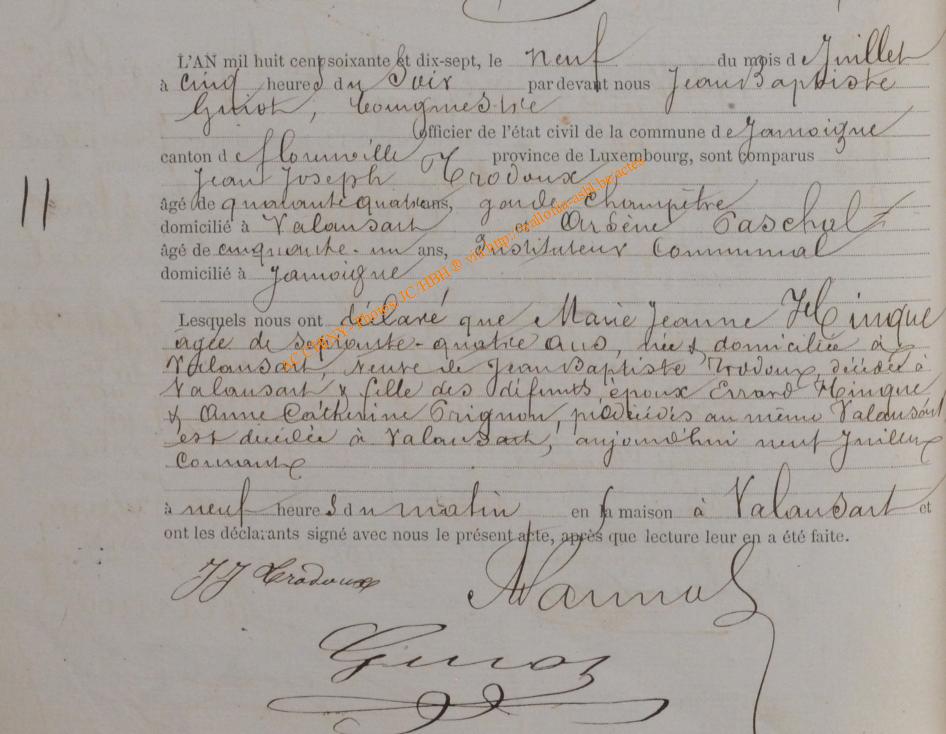 L'AN mil huit cent soixante et dix-sept, le neuf du mois de Juillet
à cinq heures du Soir pardevant nous Jean Baptiste
Guiot, bourgmestre
officier de l'état civil de la commune de Jamoigne
canton de Florenville province de Luxembourg, sont comparus
Jean Joseph Trodoux
âgé de quarante quatre ans, garde champêtre
domicilié à Valansart et Arsène Paschal
âgé de cinquante-un ans, Instituteur Communal
domicilié à Jamoigne
11
Lesquels nous ont déclaré que Marie Jeanne Hingue
agée de septante-quatre ans, née & domiciliée à
Valansart, veuve de Jean Baptiste Trodoux, décédé à
Valansart & fille des défunts époux Errard Hingue
& Anne Catherine Prignon, prédécédés au même Valansart
est décédée à Valansart, aujourd'hui neuf Juillet
Courant
à neuf heures du matin en sa maison à Valansart et
ont les déclarants signé avec nous le présent acte, après que lecture leur en a été faite.
JJ Trodoux
Guiot
Photos JC/HBH @ via http://gallonia-asbl.be/actes